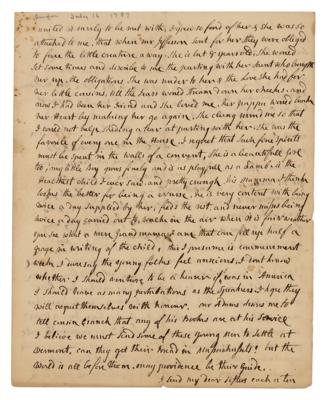 July 16 1787
united is rarely to be met with, I grew so fond of her, & she was so
attached to me, that when mr Jefferson sent for her, they were obliged
to force the little creature away. She is but 8 years old. She would
set some times and discribe to me the parting with her Aunt who brought
her up, the obligations she was under to her & the Love she had for
her little cousins, till the Tears would stream down her cheeks, and
now I had been her Friend and she loved me, her pappa would break
her Heart by making her go again. she clung round me so that
I could not help shedding a tear at parting with her. she was the
favorite of every one in the House. I regret that such fine spirits
must be spent in the walls of a convent, She is a beautifull Girl
too, my little boy grows finely and is as playfull as a Lamb, is the
Healthest child I ever saw, and pretty enough. his Mamma I think
looks the better for being a nurse, he is very content with being
twice a day supplied by her, feeds the rest, and never misses being
twice a day carried out to walk in the air when it is fair weather
you see what a mere Grandmama I am that can fill up half a
page in writing of the child, this I presume is commencement
week, I dare say the young folks feel anxious. I dont know
whether I should venture to be a hearer if I was in America
I should have as many pertubations as the Speakers. I hope they
will acquit themselves with honour. mr Adams desires me to
tell cousin Cranch that any of his Books are at his service
I believe we must send some of these young men to settle at
Vermont, can they get their Bread in Massachusets? but the
World is all before them, may providence be their Guide.
I send my dear sisters each a